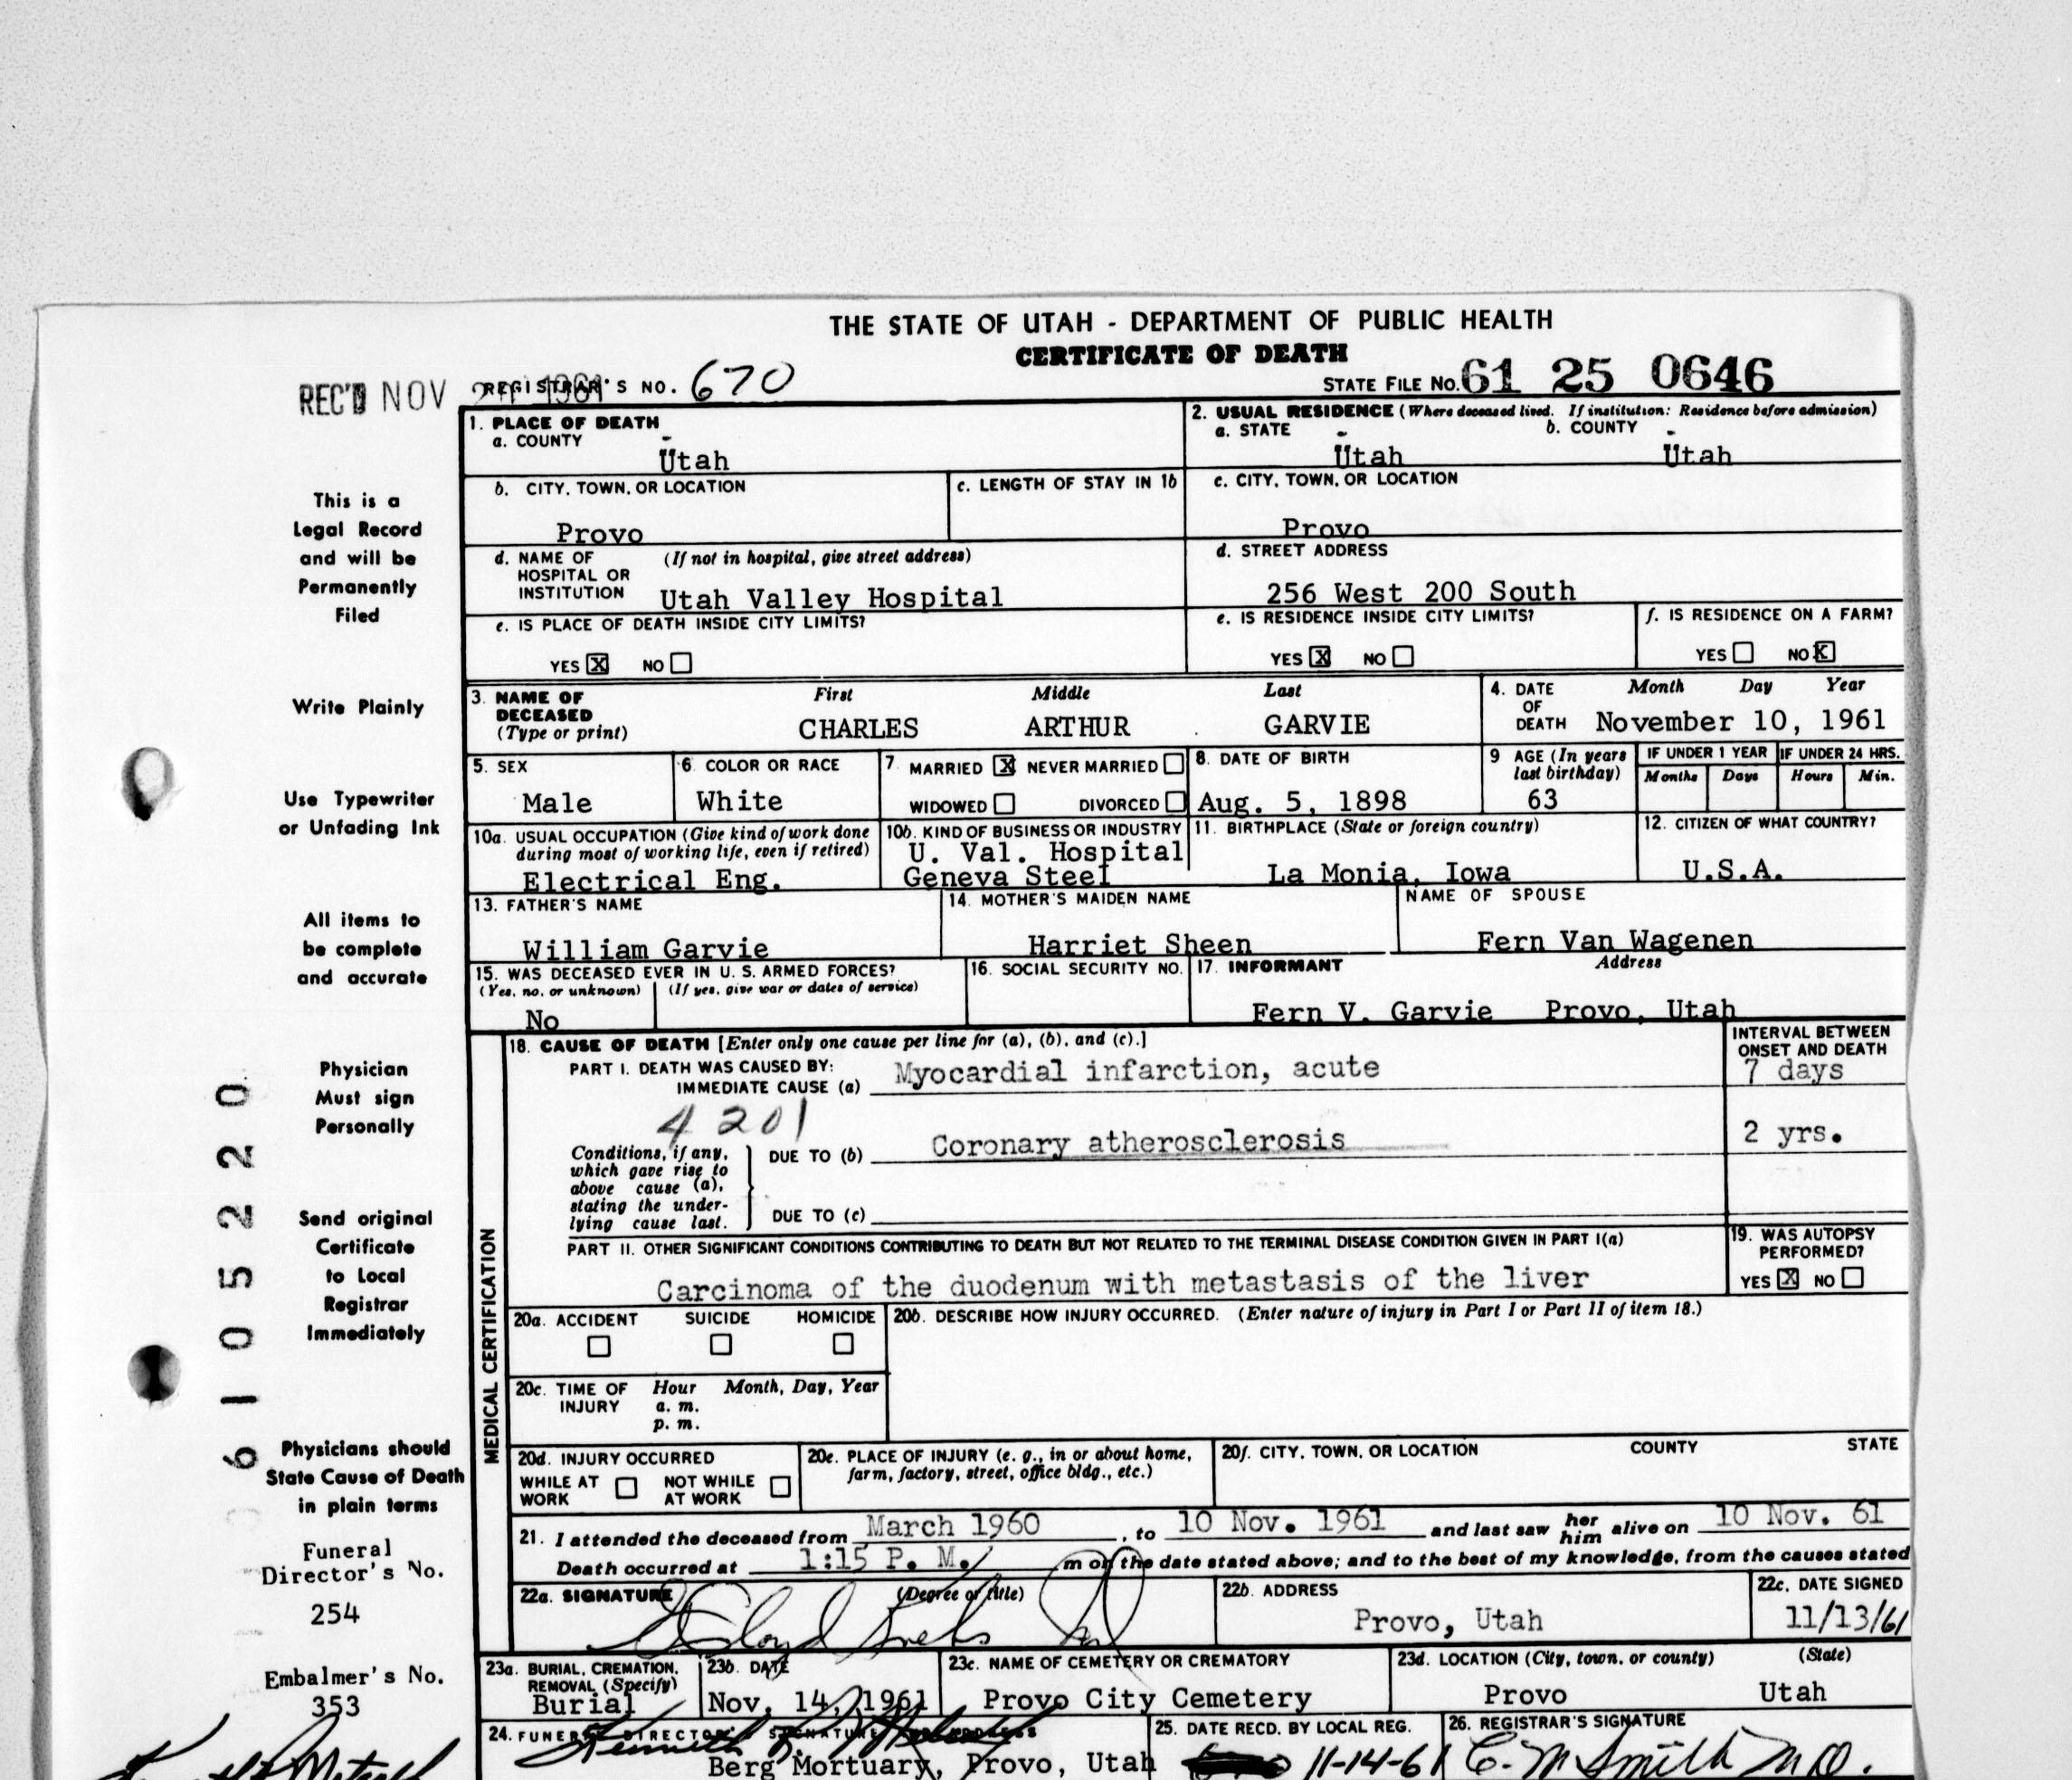 THE STATE OF UTAH - DEPARTMENT OF PUBLIC HEALTH
CERTIFICATE OF DEATH
REC'D NOV 1961 REGISTRAR'S NO. 670 STATE FILE No. 61 25 0646
1. PLACE OF DEATH
a. COUNTY
Utah
2. USUAL RESIDENCE (Where deceased lived. If institution: Residence before admission)
a. STATE b. COUNTY
Utah Utah
b. CITY, TOWN, OR LOCATION
Provo
c. LENGTH OF STAY IN 1b
c. CITY, TOWN, OR LOCATION
Provo
d. NAME OF HOSPITAL OR INSTITUTION (If not in hospital, give street address)
Utah Valley Hospital
d. STREET ADDRESS
256 West 200 South
e. IS PLACE OF DEATH INSIDE CITY LIMITS?
YES X NO
e. IS RESIDENCE INSIDE CITY LIMITS?
YES X NO
f. IS RESIDENCE ON A FARM?
YES NO X
3. NAME OF DECEASED (Type or print)
First Middle Last
CHARLES ARTHUR GARVIE
4. DATE OF DEATH
Month Day Year
November 10, 1961
5. SEX
Male
6. COLOR OR RACE
White
7. MARRIED X NEVER MARRIED
WIDOWED DIVORCED
8. DATE OF BIRTH
Aug. 5, 1898
9 AGE (In years last birthday)
63
IF UNDER 1 YEAR
Months Days
IF UNDER 24 HRS.
Hours Min.
10a. USUAL OCCUPATION (Give kind of work done
during most of working life, even if retired)
Electrical Eng.
10b. KIND OF BUSINESS OR INDUSTRY
U. Val. Hospital
Geneva Steel
11. BIRTHPLACE (State or foreign country)
La Monia, Iowa
12. CITIZEN OF WHAT COUNTRY?
U.S.A.
13. FATHER'S NAME
William Garvie
14. MOTHER'S MAIDEN NAME
Harriet Sheen
NAME OF SPOUSE
Fern Van Wagenen
15. WAS DECEASED EVER IN U. S. ARMED FORCES?
(Yes, no, or unknown) (If yes, give war or dates of service)
No
16. SOCIAL SECURITY NO.
17. INFORMANT Address
Fern V. Garvie Provo, Utah
MEDICAL CERTIFICATION
18. CAUSE OF DEATH [Enter only one cause per line for (a), (b), and (c).]
INTERVAL BETWEEN ONSET AND DEATH
PART I. DEATH WAS CAUSED BY:
IMMEDIATE CAUSE (a) Myocardial infarction, acute 7 days
4201
Conditions, if any, which gave rise to above cause (a), stating the underlying cause last.
DUE TO (b) Coronary atherosclerosis 2 yrs.
DUE TO (c)
PART II. OTHER SIGNIFICANT CONDITIONS CONTRIBUTING TO DEATH BUT NOT RELATED TO THE TERMINAL DISEASE CONDITION GIVEN IN PART I(a)
Carcinoma of the duodenum with metastasis of the liver
19. WAS AUTOPSY PERFORMED?
YES X NO
20a. ACCIDENT SUICIDE HOMICIDE
20b. DESCRIBE HOW INJURY OCCURRED. (Enter nature of injury in Part I or Part II of item 18.)
20c. TIME OF INJURY Hour Month, Day, Year
a. m.
p. m.
20d. INJURY OCCURRED
WHILE AT WORK NOT WHILE AT WORK
20e. PLACE OF INJURY (e. g., in or about home,
farm, factory, street, office bldg., etc.)
20f. CITY, TOWN, OR LOCATION COUNTY STATE
21. I attended the deceased from March 1960, to 10 Nov. 1961 and last saw her him alive on 10 Nov. 61
Death occurred at 1:15 P. M. m on the date stated above; and to the best of my knowledge, from the causes stated
22a. SIGNATURE (Degree or title)
22b. ADDRESS
Provo, Utah
22c. DATE SIGNED
11/13/61
23a. BURIAL, CREMATION, REMOVAL (Specify)
Burial
23b. DATE
Nov. 14, 1961
23c. NAME OF CEMETERY OR CREMATORY
Provo City Cemetery
23d. LOCATION (City, town, or county) (State)
Provo Utah
24. FUNERAL DIRECTOR'S SIGNATURE
Berg Mortuary, Provo, Utah
25. DATE RECD. BY LOCAL REG.
11-14-61
26. REGISTRAR'S SIGNATURE
C. M Smith M.D.
This is a
Legal Record
and will be
Permanently
Filed
Write Plainly
Use Typewriter
or Unfading Ink
All items to
be complete
and accurate
Physician
Must sign
Personally
Send original
Certificate
to Local
Registrar
Immediately
Physicians should
State Cause of Death
in plain terms
Funeral
Director's No.
254
Embalmer's No.
353
6105220